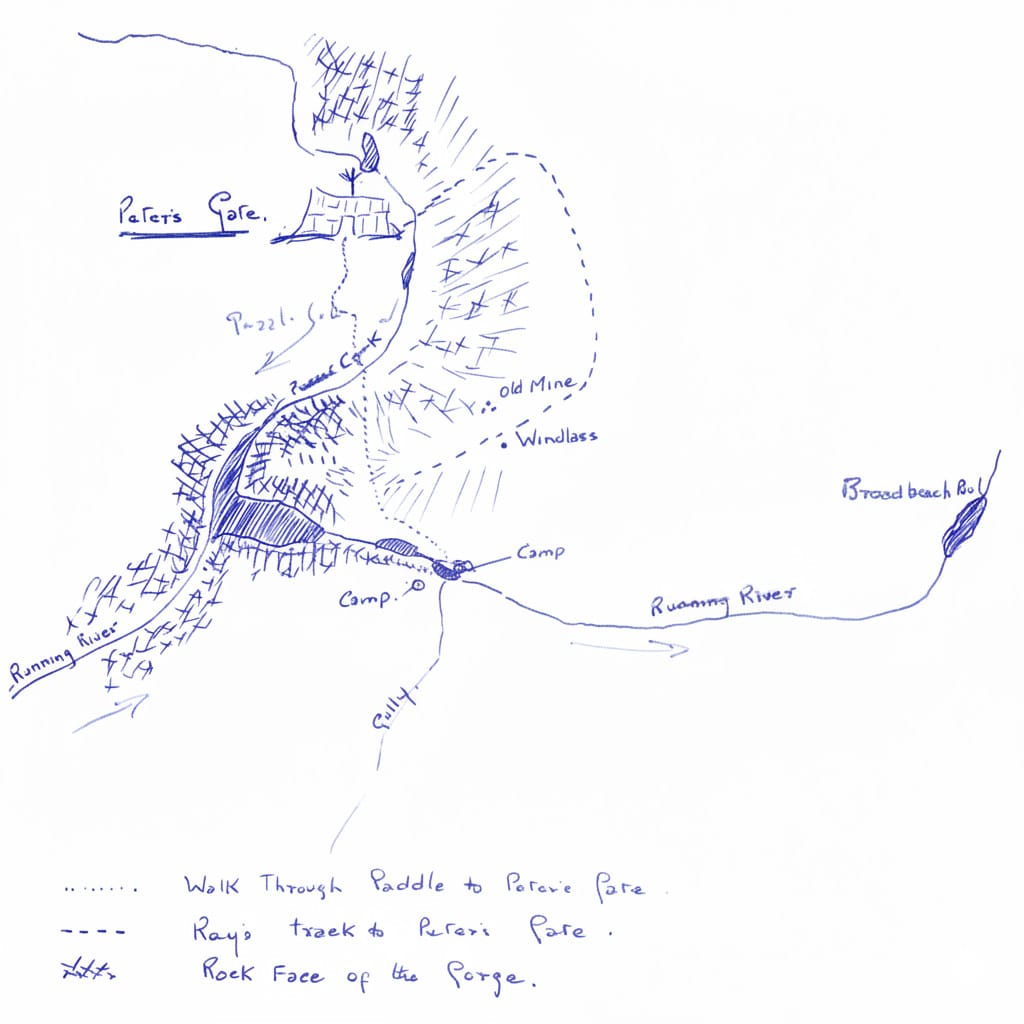 Peter's Gate.
old Mine
Windlass
Broadbeach Pool
Camp
Camp.
Running River
Running River
Gully
Walk Through Paddle to Peter's Gate.
Ray's track to Peter's Gate.
Rock Face of the Gorge.